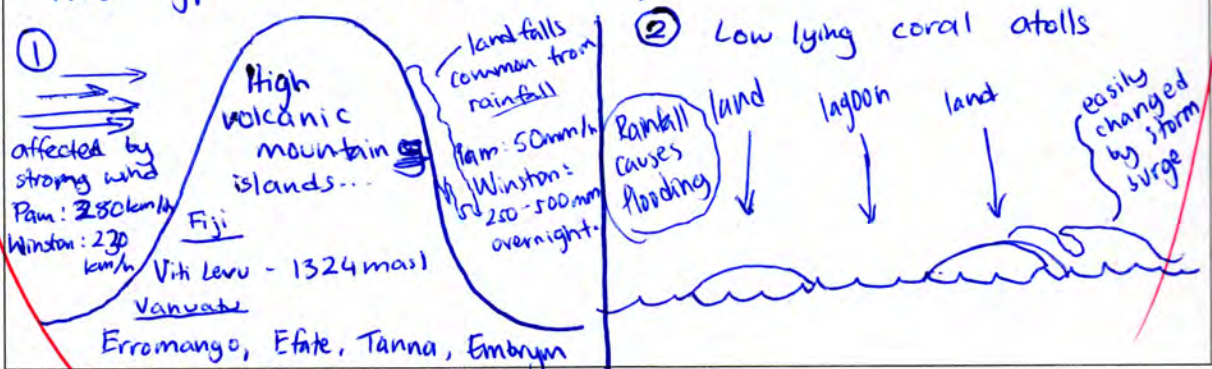 ①
affected by
strong wind
Pam: 280km/h
Winston: 230
km/h
High
volcanic
mountain
islands...
Fiji
Viti Levu - 1324masl
Vanuatu
Erromango, Efate, Tanna, Embrym
landfalls
common from
rainfall
Pam: 50mm/h
Winston:
250-500mm
overnight.
② Low lying coral atolls
Rainfall
causes
flooding
land
lagoon
land
easily
changed
by storm
surge